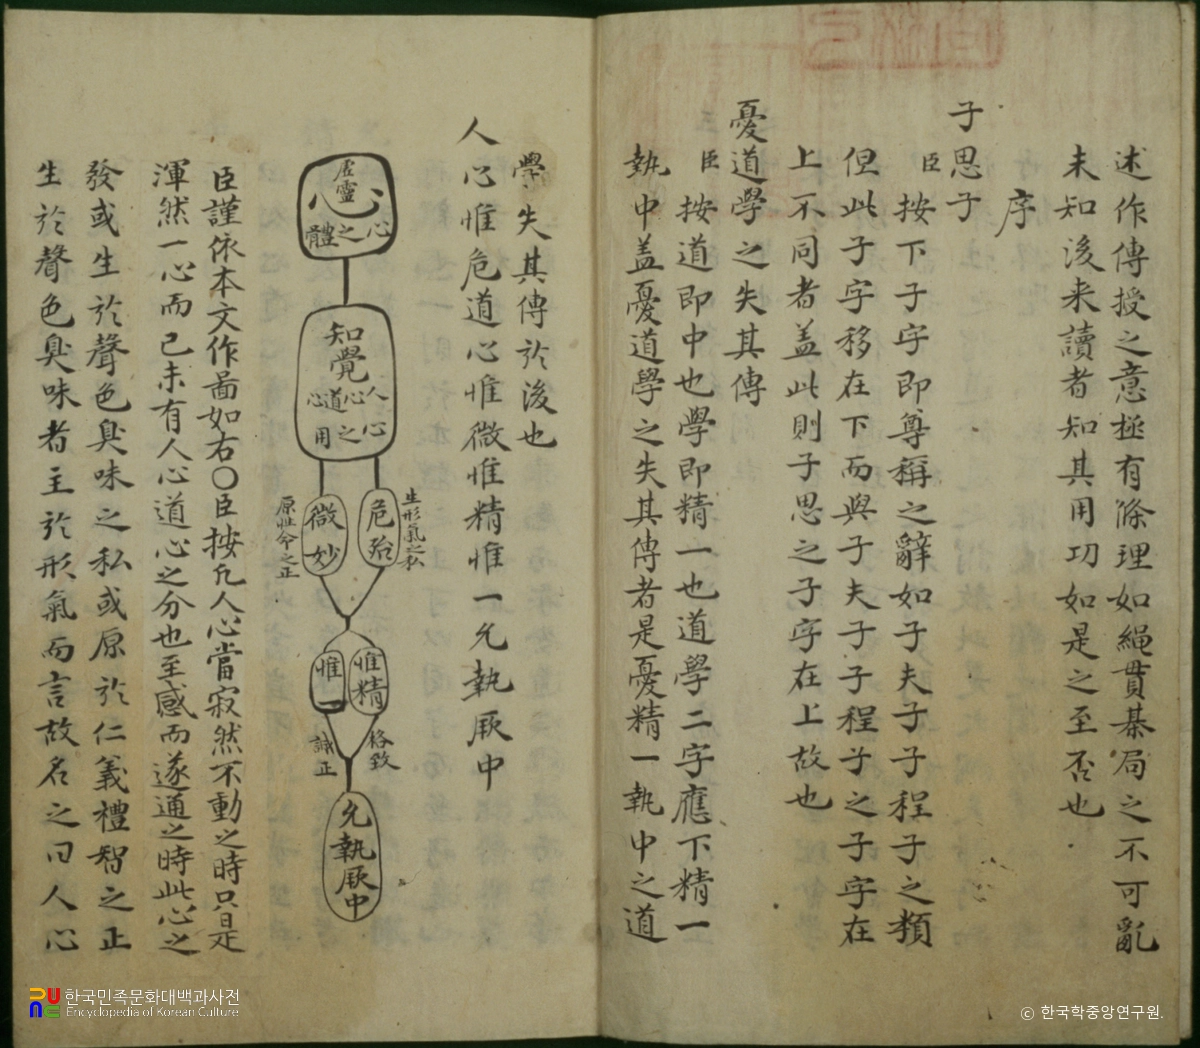 述作傳授之意極有條理如繩貫棊局之不可亂
未知後来讀者知其用功如是之至否也
序
子思子
臣按下子字即尊稱之辭如子夫子子程子之類
但此子字移在下而與子夫子子程子之子字在
上不同者盖此則子思之子字在上故也
憂道學之失其傳
臣按道即中也學即精一也道學二字應下精一
執中盖憂道學之失其傳者是憂精一執中之道
學失其傳於後也
人心惟危道心惟微惟精惟一允執厥中
虛靈
心
心之體
知覺
人心道心
心之用
生形氣之私
危殆
微妙
原性命之正
惟精
惟一
格致
誠正
允執厥中
臣謹依本文作啚如右〇臣按凡人心當寂然不動之時只是
渾然一心而已未有人心道心之分也至感而遂通之時此心之
發或生於聲色臭味之私或原於仁義禮智之正
生於聲色臭味者主於形氣而言故名之曰人心
한국민족문화대백과사전
Encyclopedia of Korean Culture
ⓒ 한국학중앙연구원.